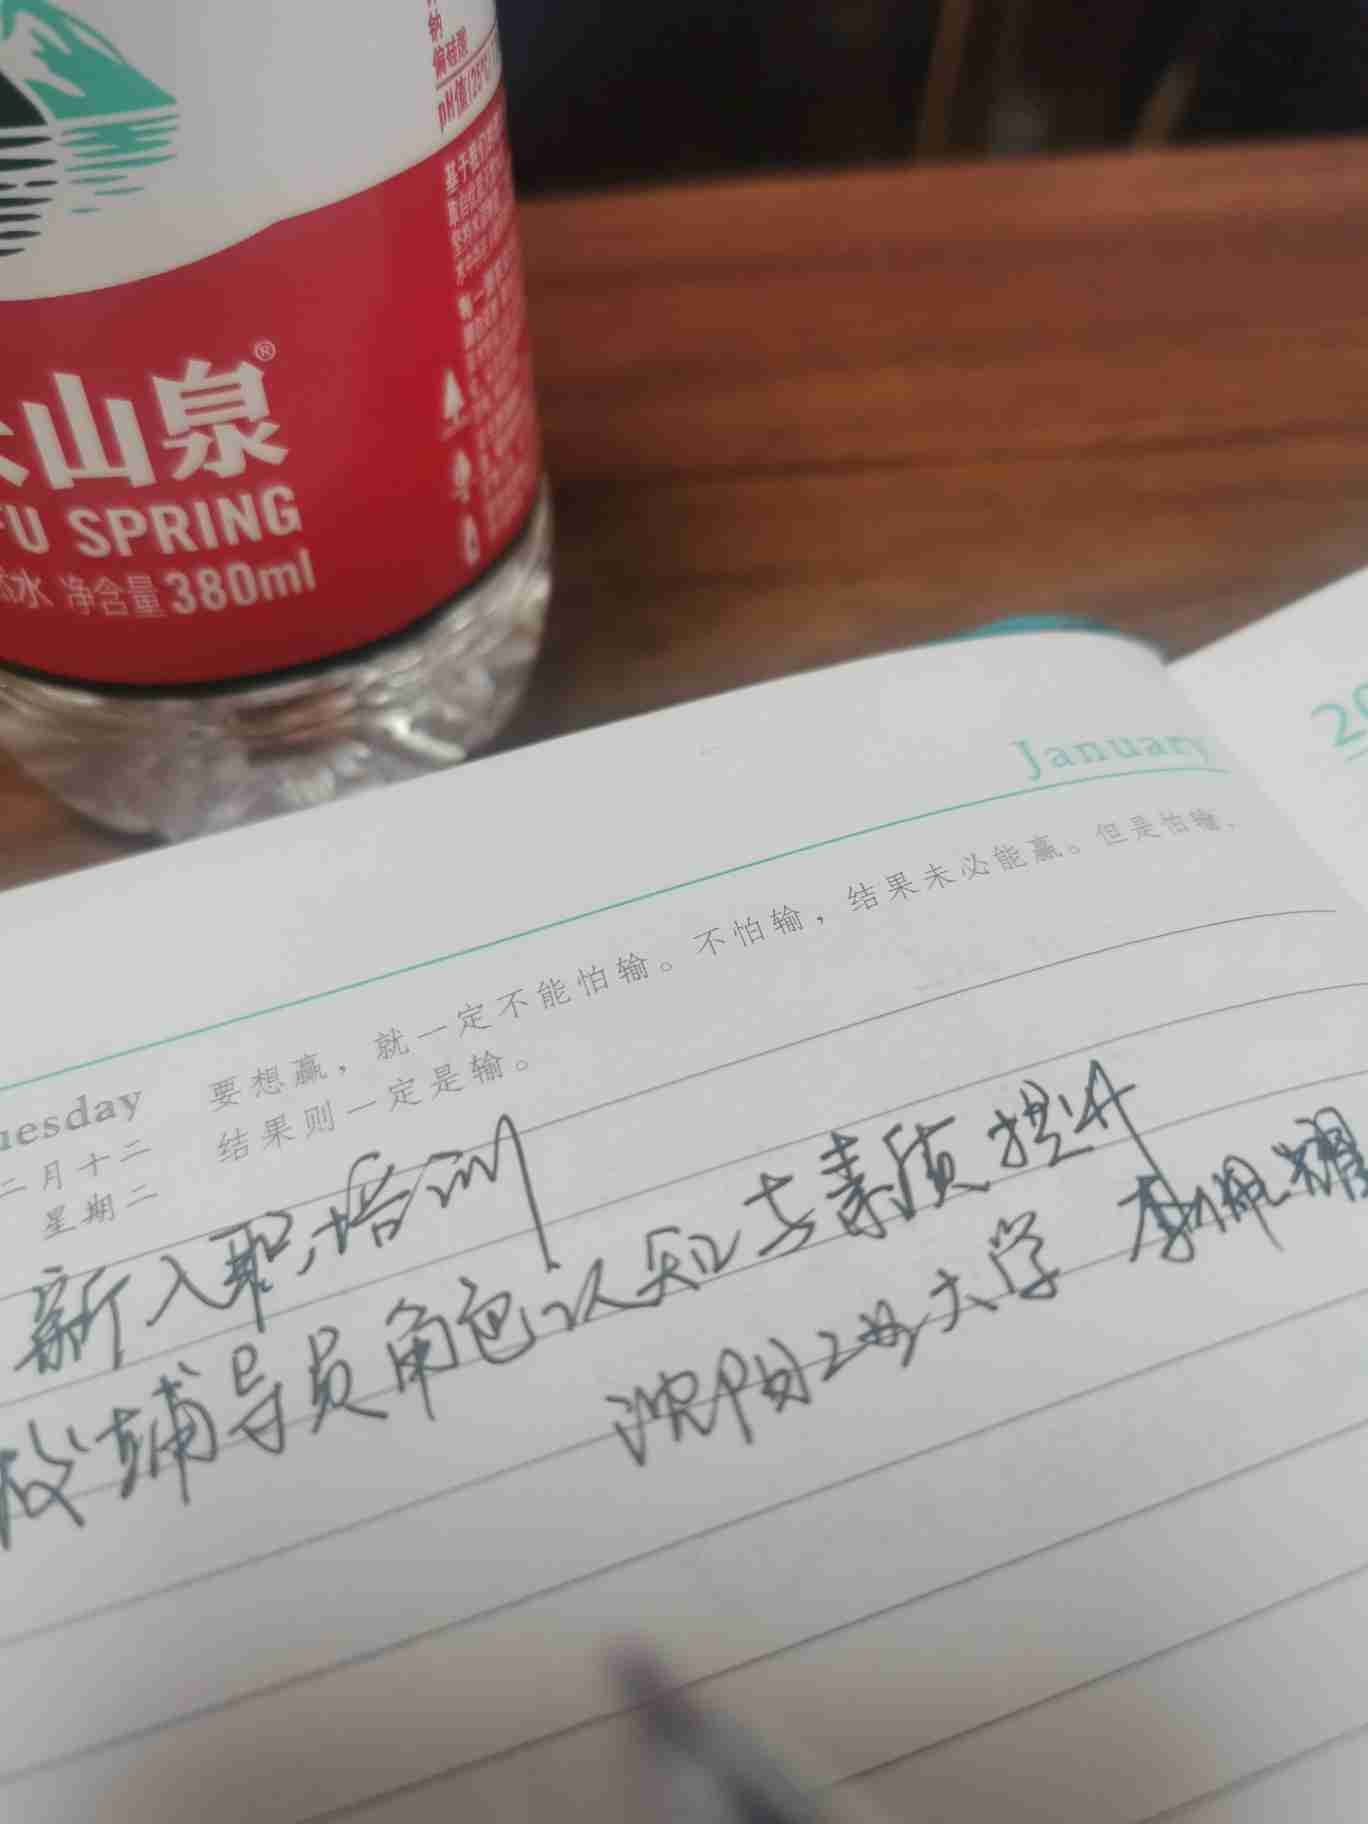 钠
偏硅酸
pH值(25℃)
山泉®
FU SPRING
水 净含量380ml
January
20
要想赢，就一定不能怕输。不怕输，结果未必能赢。但是怕输，
结果则一定是输。
uesday
二月十二
星期二
新入职培训
校辅导员角色认知与素质提升
沈阳工业大学 李佩耀